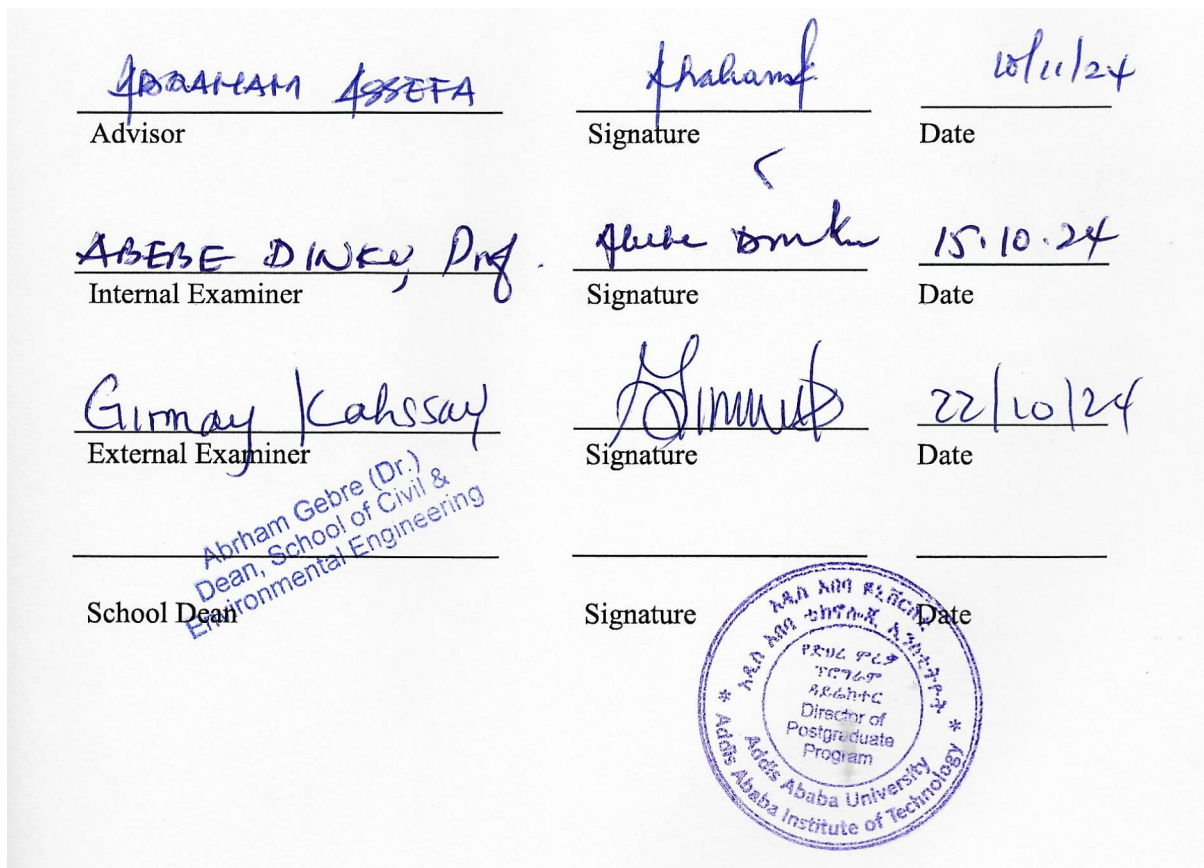 ABRAHAM ASSEFA 10/11/24
Advisor Signature Date
ABEBE DINKU, Prof. Abebe Dinku 15.10.24
Internal Examiner Signature Date
Girmay Kahssay 22/10/24
External Examiner Signature Date
Abrham Gebre (Dr.)
Dean, School of Civil &
Environmental Engineering
School Dean Signature Date
አዲስ አበባ ዩኒቨርሲቲ
አዲስ አበባ ቴክኖሎጂ ኢንስቲትዩት
የድህረ ምረቃ
ፕሮግራም
ዳይሬክተር
Director of
Postgraduate
Program
Addis Ababa University
* Addis Ababa Institute of Technology *